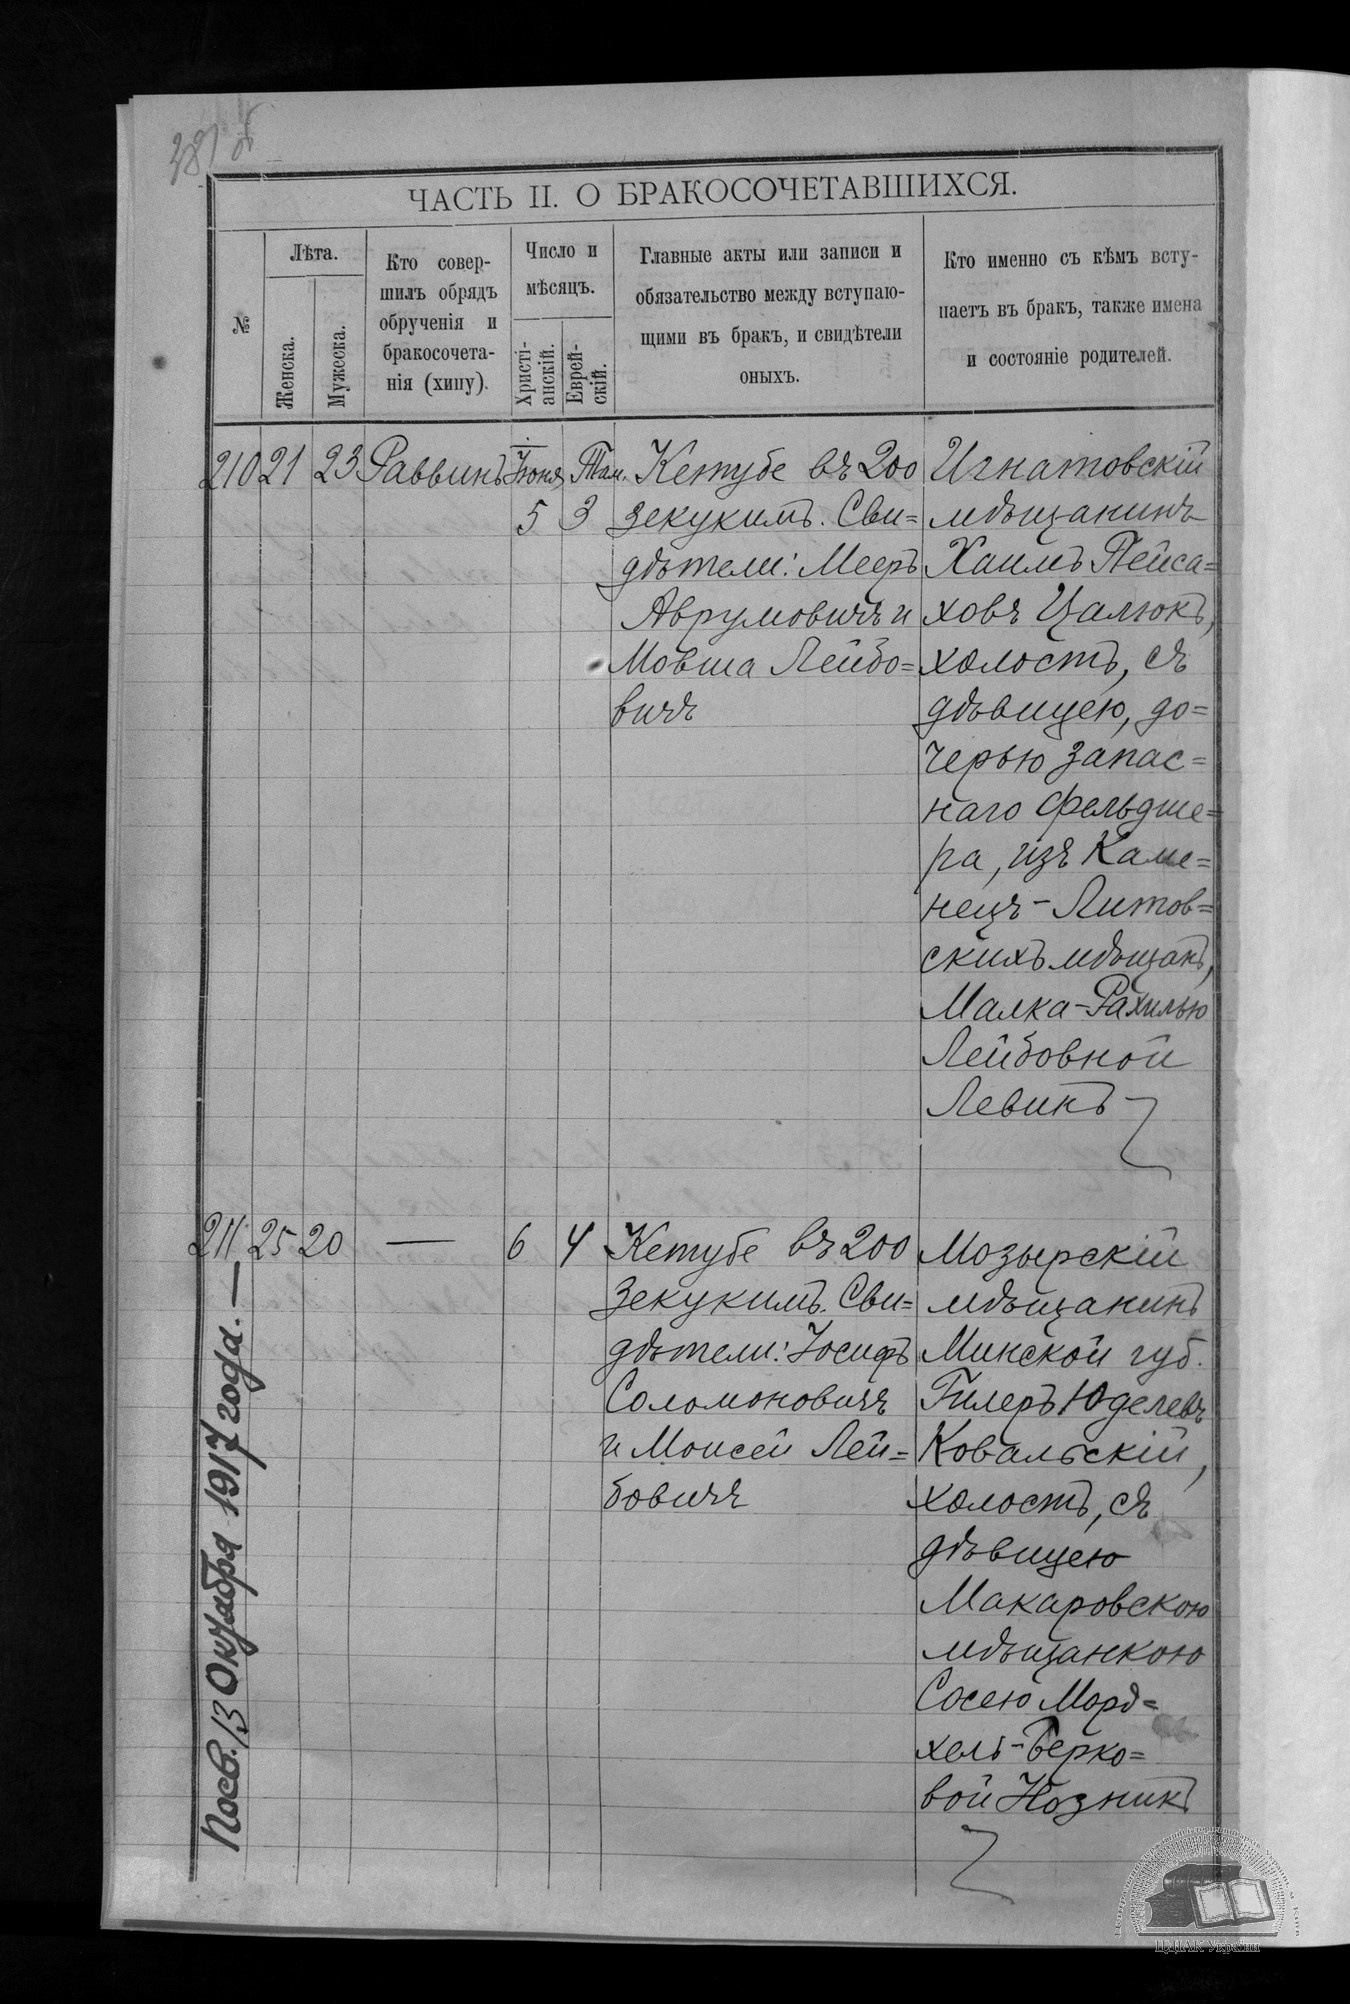 281 об
ЧАСТЬ II. О БРАКОСОЧЕТАВШИХСЯ.
№
Лѣта.
Женска.
Мужеска.
Кто совер-
шилъ обрядъ
обрученія и
бракосочета-
нія (хипу).
Число и
мѣсяцъ.
Христі-
анскій.
Еврей-
скій.
Главные акты или записи и
обязательство между вступаю-
щими въ бракъ, и свидѣтели
оныхъ.
Кто именно съ кѣмъ всту-
паетъ въ бракъ, также имена
и состояніе родителей.
210 21 23 Раввинъ Іюня 5 Там. 3
Кетубе въ 200
зекукимъ. Сви=
дѣтели: Мееръ
Аврумовичъ и
Мовша Лейбо=
вичъ
Игнатовскій
мѣщанинъ
Хаимъ Пейса=
ховъ Цалюкъ,
холостъ, съ
дѣвицею, до=
черью запас=
наго фельдше=
ра, изъ Каме=
нецъ-Литов=
скихъ мѣщанъ,
Малка-Рахилью
Лейбовной
Левинъ
211 25 20 — 6 4
Кетубе въ 200
Зекукимъ. Сви=
дѣтели: Іосифъ
Соломоновичъ
и Моисей Лей=
бовичъ
Мозырскій
мѣщанинъ
Минской губ.
Гилеръ Юделевъ
Ковальскій,
холостъ, съ
дѣвицею
Макаровскою
мѣщанкою
Сосею Морд=
хель-Берко=
вой Нозникъ
Посв. 13 Октября 1917 года. —
ЦДІАК України